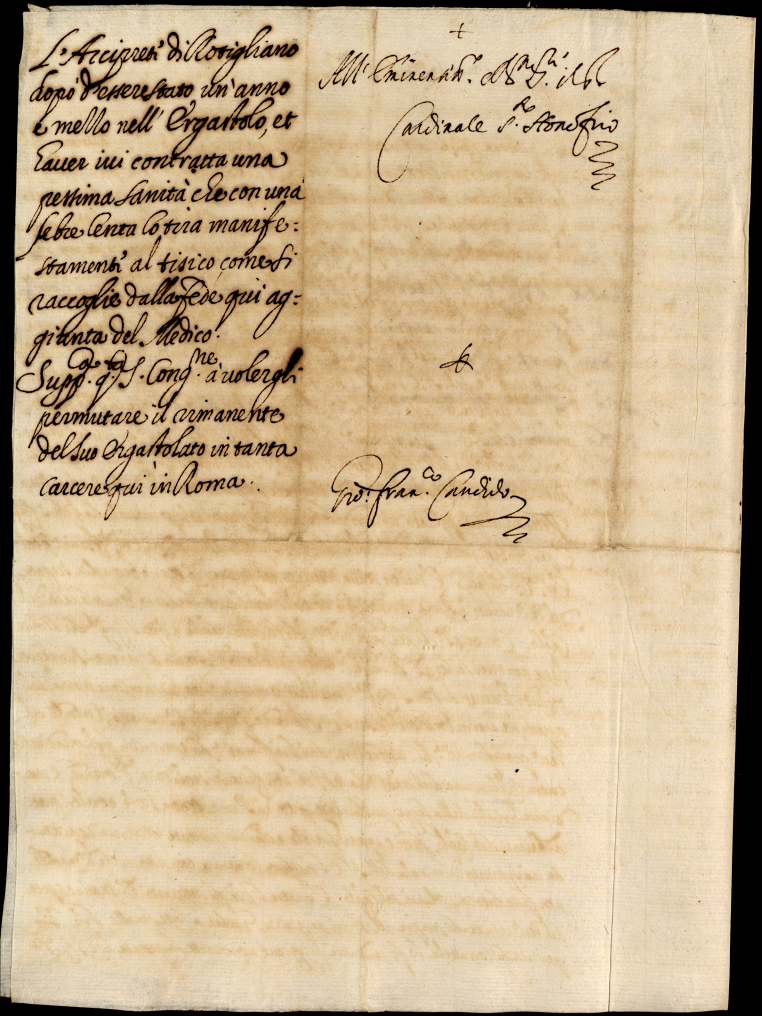 L'Arciprete di Rotigliano
dopò d'essere stato un'anno
e mezzo nell'Ergastolo, et
hauer iui contratta una
pessima sanità che con una
febre lenta lo tira manife:
stamente al tisico, come si
raccoglie dalla fede qui ag:
giunta del Medico.
Supp.ca q.ta S. Cong.ne à volergli
permutare il rimanente
del suo Ergastolato in tanta
carcere qui in Roma.
+
All' Eminentiss.o et R.mo S.r il S.r
Cardinale S.to Honofrio
+
Gio: Fran.co Candido